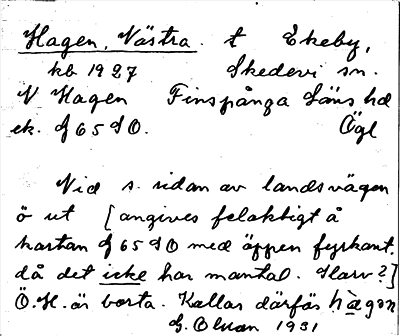 Hagen, Västra. t Ekeby,
kb 1927 Skedevi sn.
V Hagen Finspånga Läns hd
ek. J65SO. Ögl
Vid s. sidan av landsvägen
ö ut [angives felaktigt å
kartan J65SO med öppen fyrkant.
då det icke har mantal. Slarv?]
Ö.H. är borta. Kallas därför hàgọn
G. Olson 1931